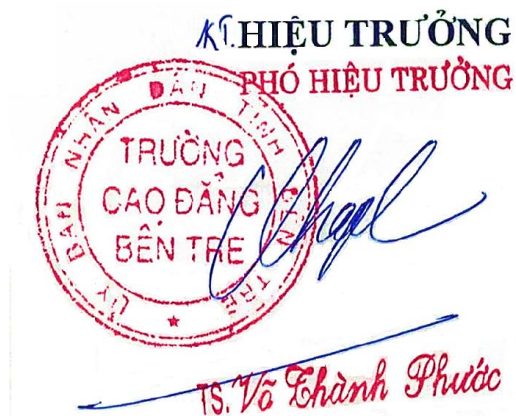 KT. HIỆU TRƯỞNG
PHÓ HIỆU TRƯỞNG
ỦY BAN NHÂN DÂN TỈNH BẾN TRE
TRƯỜNG
CAO ĐẲNG
BẾN TRE
TS. Võ Thành Phước